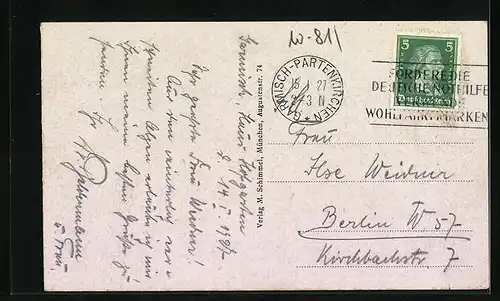 Garmisch, Haus Hohgarten
d. 14. I. 1927
Sehr geehrte Frau Weidner!
Aus dem
Alpen erlaube ich mir
Ihnen meine besten Grüße zu
senden. Ihr
u. Frau.
Verlag M. Schimmel, München, Augustenstr. 74
W-811
GARMISCH-PARTENKIRCHEN
15. 1 27
2-3 N
5 5
Deutsches Reich
FÖRDERE DIE
DEUTSCHE NOTHILFE
WOHLFAHRTSMARKEN
Frau
Ilse Weidner
Berlin W 57
Kirchbachstr. 7